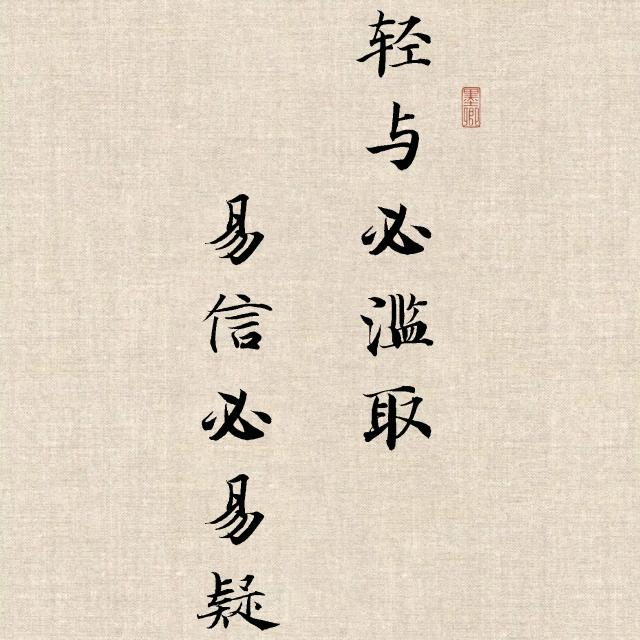 轻与必滥取
易信必易疑
墨卿